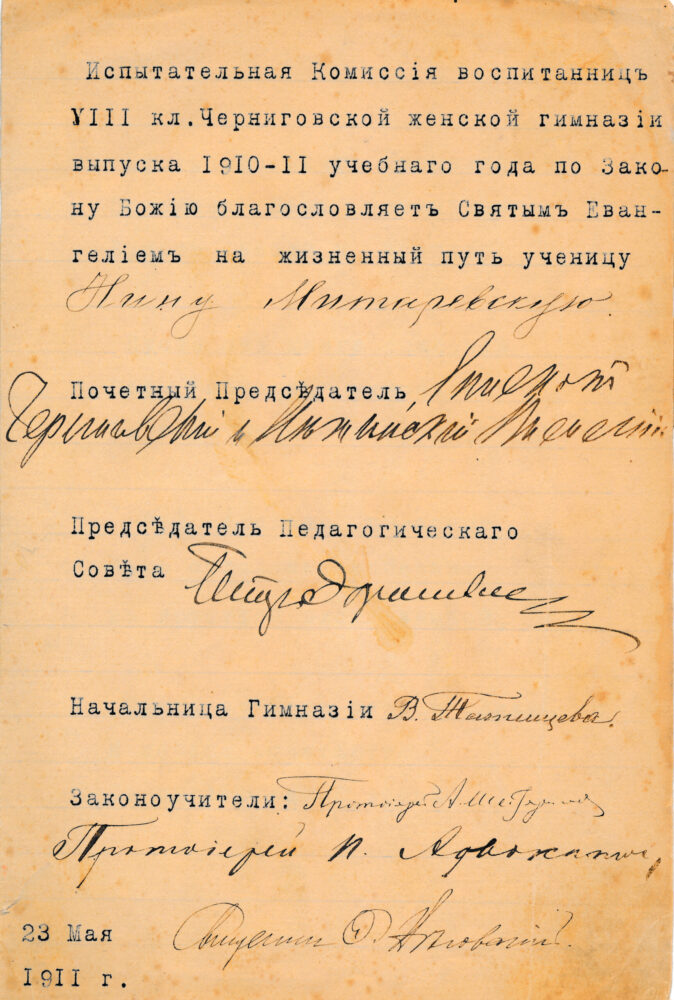 Испытательная Комиссія воспитанницъ
VIII кл. Черниговской женской гимназіи
выпуска 1910-11 учебнаго года по Зако-
ну Божію благословляетъ Святымъ Еван-
геліемъ на жизненный путь ученицу
Нину Митаревскую.
Почетный Предсѣдатель Епископъ
Черниговскій и Нѣжинскій Василій
Предсѣдатель Педагогическаго
Совѣта
Начальница Гимназіи В. Татищева.
Законоучители: Протоіерей А.
Протоіерей П.
23 Мая Священникъ
1911 г.